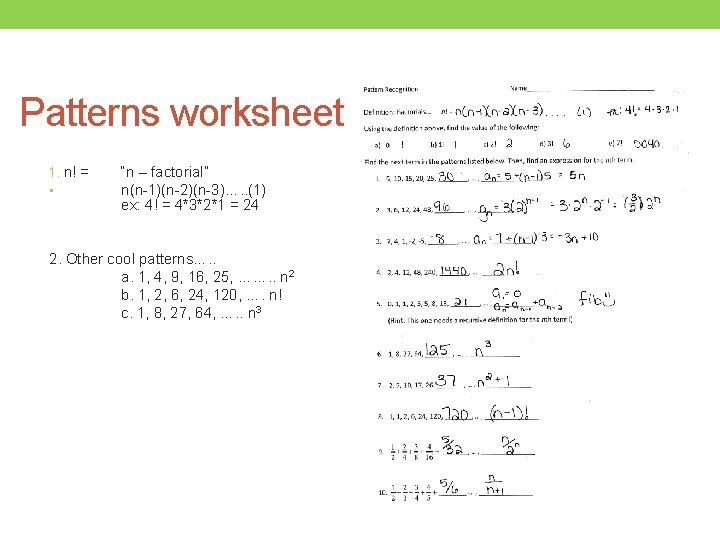 Patterns worksheet
1. n! = "n – factorial"
• n(n-1)(n-2)(n-3)…..(1)
ex: 4! = 4*3*2*1 = 24
2. Other cool patterns…..
a. 1, 4, 9, 16, 25, …….. n²
b. 1, 2, 6, 24, 120, …. n!
c. 1, 8, 27, 64, ….. n³
Pattern Recognition Name
Definition: Factorials… n! = n(n-1)(n-2)(n-3).... (1) 4! = 4·3·2·1
Using the definition above, find the value of the following:
a) 0! 1 b) 1! 1 c) 2! 2 d) 3! 6 e) 7! 5040
Find the next term in the patterns listed below. Then, find an expression for the nth term.
1. 5, 10, 15, 20, 25, 30 .... aₙ = 5+(n-1)5 = 5n
2. 3, 6, 12, 24, 48, 96 .... gₙ = 3(2)ⁿ⁻¹ = 3·2ⁿ·2⁻¹ = (3/2)2ⁿ
3. 7, 4, 1, -2, -5, -8 .... aₙ = 7+(n-1)·-3 = -3n+10
4. 2, 4, 12, 48, 240, 1440 .... 2n!
5. 0, 1, 1, 2, 3, 5, 8, 13, 21 .... a₁ = 0 aₙ = aₙ₋₁ + aₙ₋₂ fib
(Hint: This one needs a recursive definition for the nth term!)
6. 1, 8, 27, 64, 125 .... n³
7. 2, 5, 10, 17, 26, 37 .... n²+1
8. 1, 1, 2, 6, 24, 120, 720 .... (n-1)!
9. 1/2 + 2/4 + 3/8 + 4/16 + 5/32 .... n/2ⁿ
10. 1/2 + 2/3 + 3/4 + 4/5 + 5/6 .... n/n+1